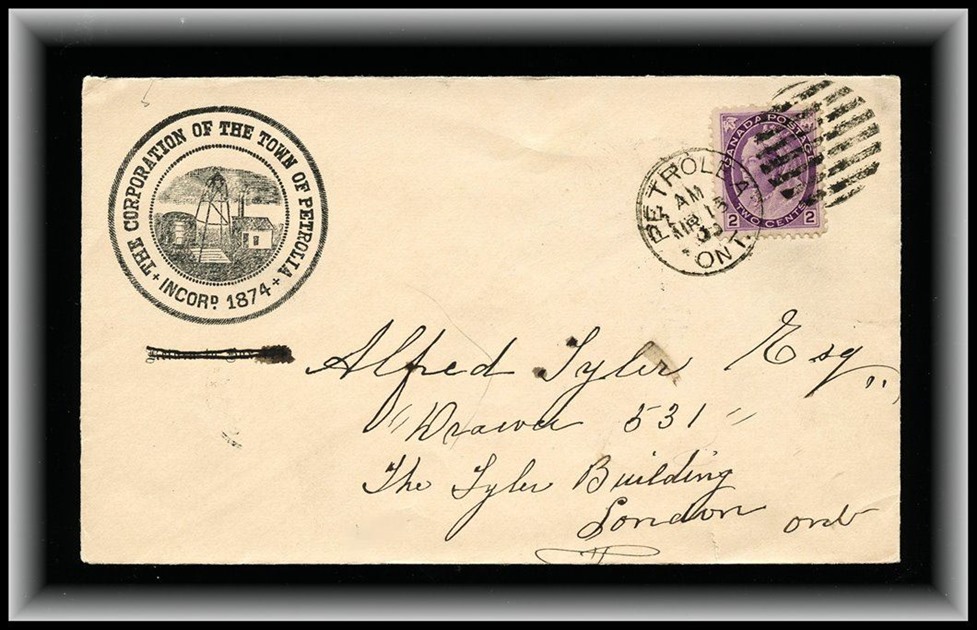 THE CORPORATION OF THE TOWN OF PETROLIA
INCORD. 1874
CANADA POSTAGE
2 TWO CENTS 2
PETROLEA
AM
15
ONT.
Alfred Tyler Esq,,
"Drawer 531"
The Tyler Building
London Ont